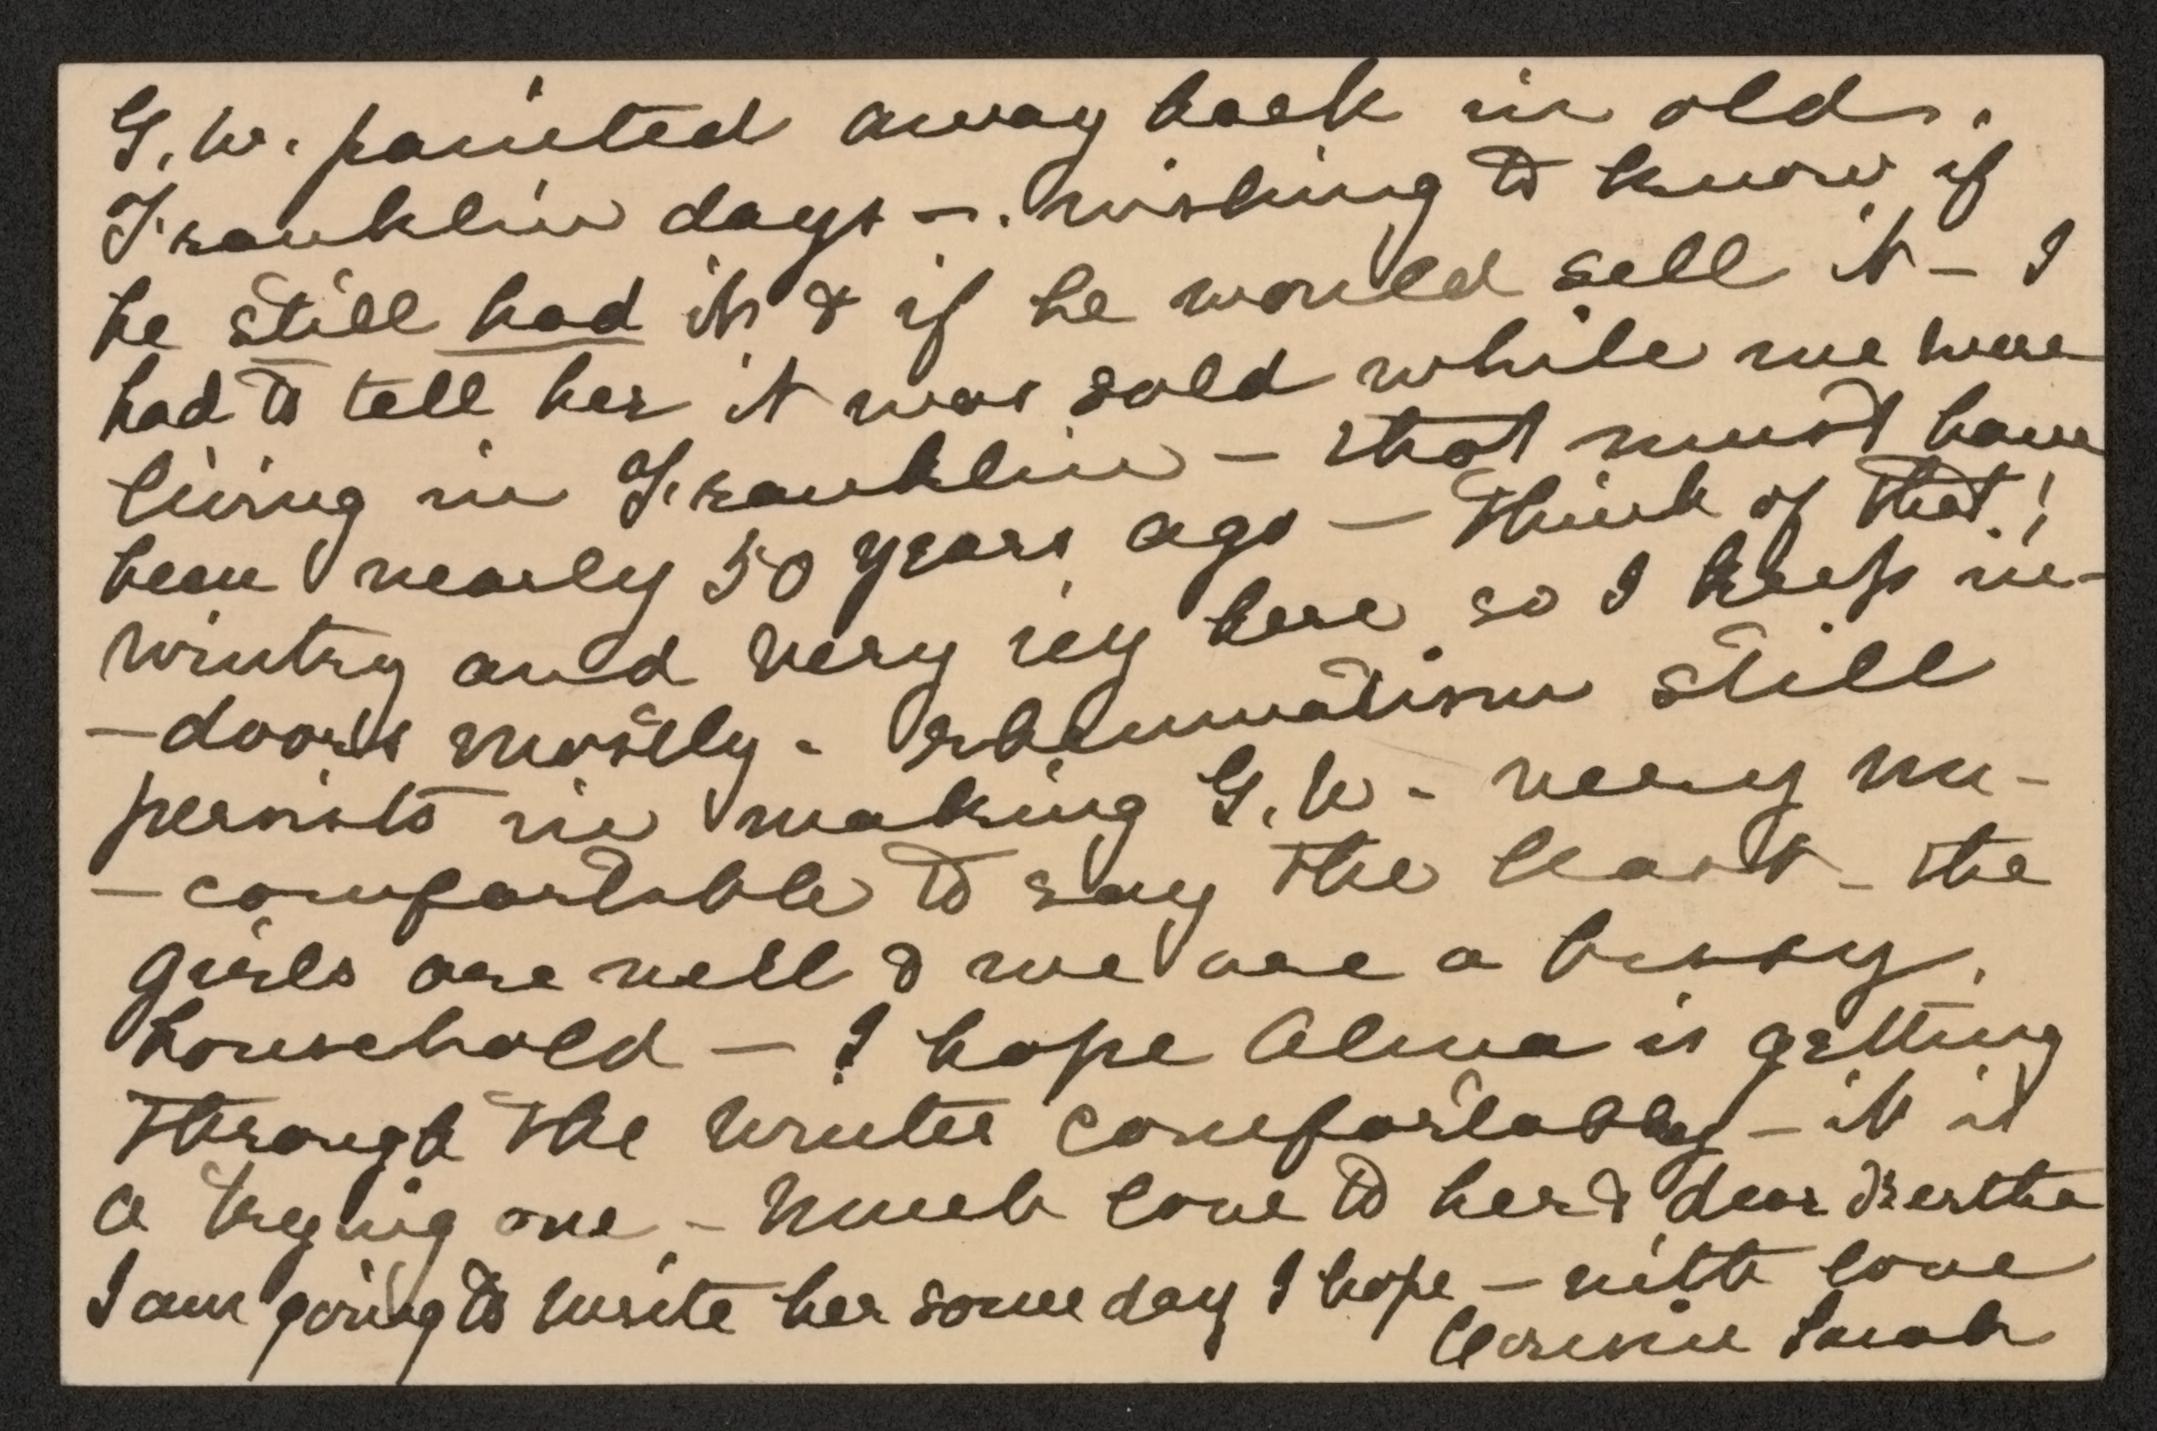 G.W. painted away back in old.
Franklin days -. wishing to know if
he still had it & if he would sell it - I
had to tell her it was sold while we were
living in Franklin - that must have
been nearly 50 years ago - Think of that!
Wintry and very icy here so I keep in-
-doors mostly - rheumatism still
persists in making G.W. very un-
-comfortable to say the least - the
girls are well & we are a busy
household - I hope Alma is getting
through the winter comfortably - it is
a trying one - Much love to her & dear Bertha
I am going to write her some day I hope - with love
Cousin Sarah